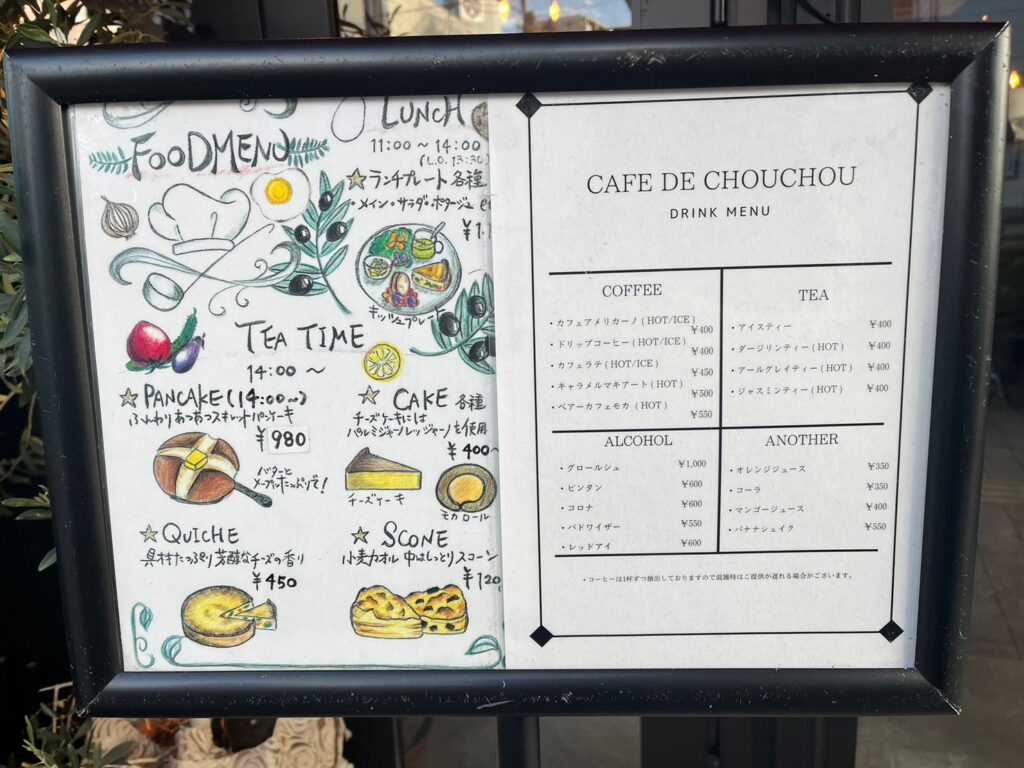 FOODMENU
LUNCH
11:00 ~ 14:00
(L.O. 13:30)
☆ランチプレート各種
・メイン・サラダ・ポタージュ
¥1,1
キッシュプレート
TEA TIME
14:00 ~
☆PANCAKE (14:00~)
ふんわりあつあつスキレットパンケーキ
¥980
バターと
メープルたっぷりで!
☆CAKE 各種
チーズケーキには
パルミジャーノレッジャーノを使用
¥400~
チーズケーキ
モカロール
☆QUICHE
具材たっぷり芳醇なチーズの香り
¥450
☆SCONE
小麦カオル 中はしっとりスコーン
¥120
CAFE DE CHOUCHOU
DRINK MENU
COFFEE
・カフェアメリカーノ ( HOT/ICE ) ¥400
・ドリップコーヒー ( HOT/ICE ) ¥400
・カフェラテ ( HOT/ICE ) ¥450
・キャラメルマキアート ( HOT ) ¥500
・ベアーカフェモカ ( HOT ) ¥550
TEA
・アイスティー ¥400
・ダージリンティー ( HOT ) ¥400
・アールグレイティー ( HOT ) ¥400
・ジャスミンティー ( HOT ) ¥400
ALCOHOL
・グロールシュ ¥1,000
・ビンタン ¥600
・コロナ ¥600
・バドワイザー ¥550
・レッドアイ ¥600
ANOTHER
・オレンジジュース ¥350
・コーラ ¥350
・マンゴージュース ¥400
・バナナシェイク ¥550
・コーヒーは1杯ずつ抽出しておりますので混雑時はご提供が遅れる場合がございます。